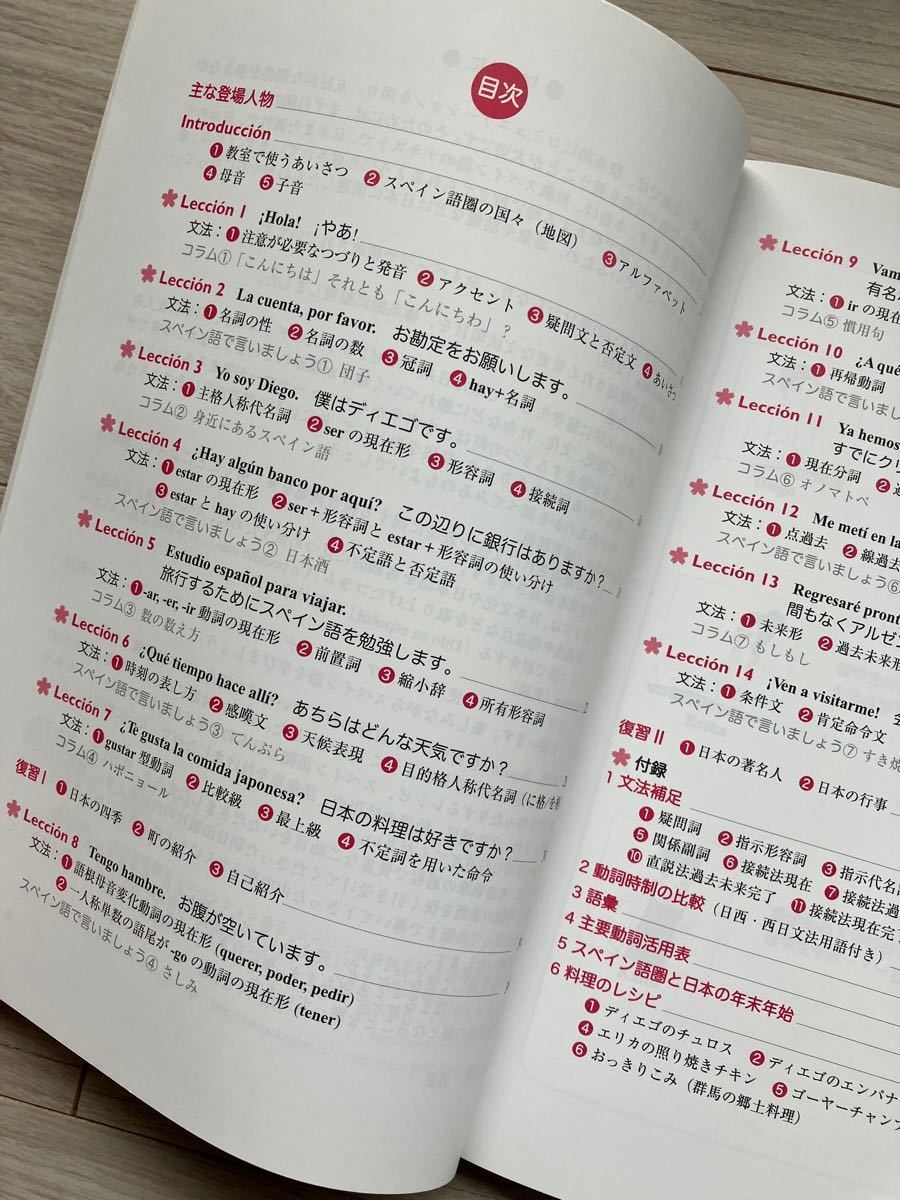 目次
主な登場人物
Introducción
❶ 教室で使うあいさつ ❷ スペイン語圏の国々（地図） ❸ アルファベット
❹ 母音 ❺ 子音
Lección 1 ¡Hola! ¡やあ!
文法：❶ 注意が必要なつづりと発音 ❷ アクセント ❸ 疑問文と否定文 ❹ あいさつ
コラム① 「こんにちは」それとも「こんにちわ」？
Lección 2 La cuenta, por favor. お勘定をお願いします。
文法：❶ 名詞の性 ❷ 名詞の数 ❸ 冠詞 ❹ hay+名詞
スペイン語で言いましょう① 団子
Lección 3 Yo soy Diego. 僕はディエゴです。
文法：❶ 主格人称代名詞 ❷ ser の現在形 ❸ 形容詞 ❹ 接続詞
コラム② 身近にあるスペイン語
Lección 4 ¿Hay algún banco por aquí? この辺りに銀行はありますか？
文法：❶ estar の現在形 ❷ ser + 形容詞と estar + 形容詞の使い分け
❸ estar と hay の使い分け ❹ 不定語と否定語
スペイン語で言いましょう② 日本酒
Lección 5 Estudio español para viajar.
旅行するためにスペイン語を勉強します。
文法：❶ -ar, -er, -ir 動詞の現在形 ❷ 前置詞 ❸ 縮小辞 ❹ 所有形容詞
コラム③ 数の数え方
Lección 6 ¿Qué tiempo hace allí? あちらはどんな天気ですか？
文法：❶ 時刻の表し方 ❷ 感嘆文 ❸ 天候表現 ❹ 目的格人称代名詞（に格/を格
スペイン語で言いましょう③ てんぷら
Lección 7 ¿Te gusta la comida japonesa? 日本の料理は好きですか？
文法：❶ gustar 型動詞 ❷ 比較級 ❸ 最上級 ❹ 不定詞を用いた命令
コラム④ ハポニョール
復習 I ❶ 日本の四季 ❷ 町の紹介 ❸ 自己紹介
Lección 8 Tengo hambre. お腹が空いています。
文法：❶ 語根母音変化動詞の現在形 (querer, poder, pedir)
❷ 一人称単数の語尾が -go の動詞の現在形 (tener)
スペイン語で言いましょう④ さしみ
Lección 9 Vam
有名
文法：❶ ir の現在
コラム⑤ 慣用句
Lección 10 ¿A qué
文法：❶ 再帰動詞
スペイン語で言いましょ
Lección 11 Ya hemos
すでにクリ
文法：❶ 現在分詞 ❷
コラム⑥ オノマトペ
Lección 12 Me metí en la
文法：❶ 点過去 ❷ 線過去
スペイン語で言いましょう⑥
Lección 13 Regresaré pront
間もなくアルゼン
文法：❶ 未来形 ❷ 過去未来形
コラム⑦ もしもし
Lección 14 ¡Ven a visitarme!
文法：❶ 条件文 ❷ 肯定命令文
スペイン語で言いましょう⑦ すき焼
復習 II ❶ 日本の著名人 ❷ 日本の行事
付録
1 文法補足
❶ 疑問詞 ❷ 指示形容詞 ❸ 指示代名
❺ 関係副詞 ❻ 接続法現在 ❼ 接続法過
❿ 直説法過去未来完了 ⓫ 接続法現在完
2 動詞時制の比較（日西・西日文法用語付き）
3 語彙
4 主要動詞活用表
5 スペイン語圏と日本の年末年始
6 料理のレシピ
❶ ディエゴのチュロス ❷ ディエゴのエンパナ
❹ エリカの照り焼きチキン ❺ ゴーヤーチャンプ
❻ おっきりこみ（群馬の郷土料理）